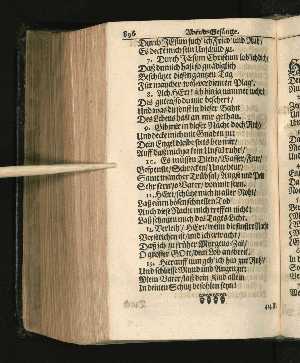 896 Abend-Gesänge.
Durch JEsum such' ich Fried' und Ruh/
Es deckt mich sein Unschuld zu.
7. Durch JEsum Christum lob' ich dich/
Daß du mich hast so gnädiglich
Beschützt diesen gantzen Tag
Für mancher wolverdienten Plag'.
8. Ach HErr ich bin ja nimmer wehrt
Des guten/so du mir beschert/
Und was du sonst in dieser Bahn
Des Lebens hast an mir gethan.
9. Gib mir in dieser Nacht doch Ruh/
Und decke mich mit Gnaden zu:
Dein Engel bleibe stets bey mir/
Auff daß mich ja kein Unfall rühr'/
10. Es müssen Diebe/Wasser/Feur/
Gespenste/Schrecken/Ungeheur/
Samt mancher Trübsal/Angst und Pein
Sehr fern/o Vater/von mir seyn.
11. HErr/schütze mich in aller Noht/
Laß einen bösen schnellen Tod
Auch diese Nacht mich treffen nicht:
Laß schauen mich des Tages Licht.
12. Verleih/HErr/wenn die finstre Nacht
Verstrichen ist/und ich erwacht/
Daß ich zu früher Morgens-Zeit/
O grosser GOtt/dein Lob ausbreit.
13. Hierauff nun geh' ich hin zur Ruh/
Und schliesse Mund und Augen zu:
Mein Vater/laß dein Kind allein
In deinen Schutz befohlen seyn!